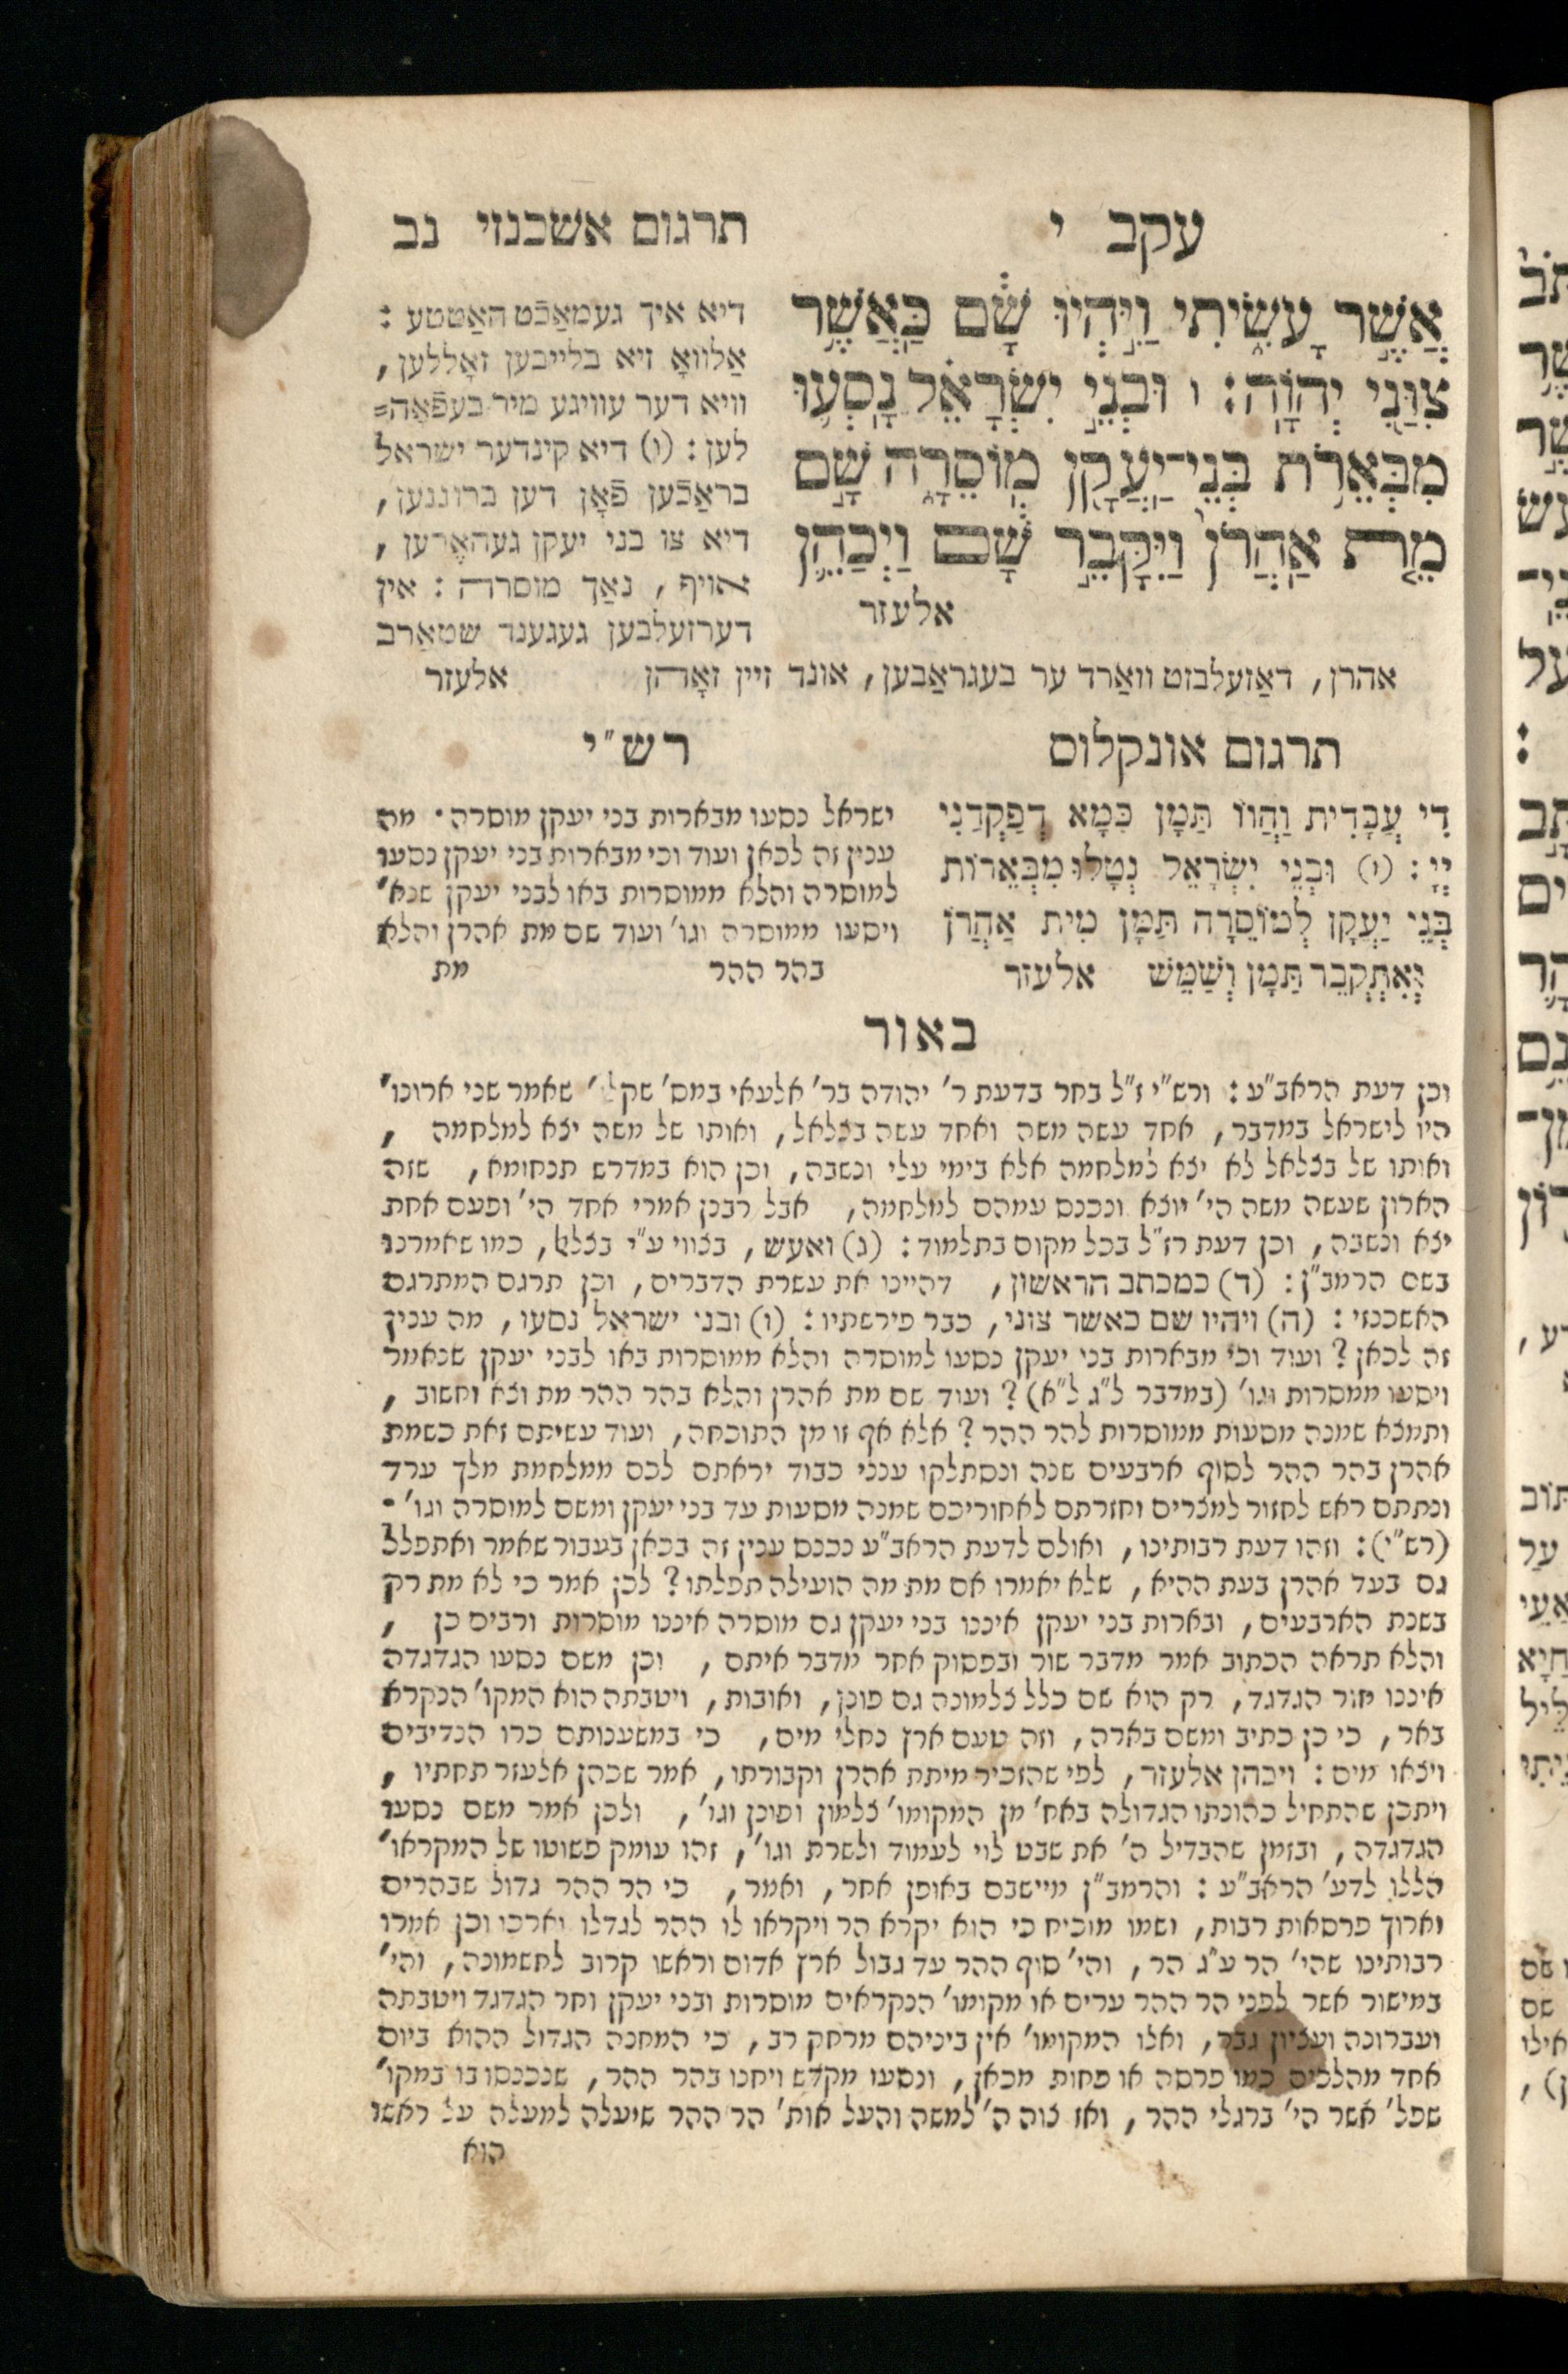 עקב י
תרגום אשכנזי נב
אֲשֶׁר עָשִׂיתִי וַיִּהְיוּ שָׁם כַּאֲשֶׁר
צִוַּנִי יְהוָֹה׃ ו וּבְנֵי יִשְׂרָאֵל נָסְעוּ
מִבְּאֵרֹת בְּנֵי־יַעֲקָן מוֹסֵרָה שָׁם
מֵת אַהֲרֹן וַיִּקָּבֵר שָׁם וַיְכַהֵן
אלעזר
דיא איך געמאַכֿט האַטטע :
אַלוואָ זיא בלייבען זאָללען,
וויא דער עוויגע מיר בעפֿאָה=
לען : (ו) דיא קינדער ישראל
בראַכֿען פֿאָן דען ברוננען,
דיא צו בני יעקן געהאֶרען,
אויף, נאַך מוסרה : אין
דערזעלבען געגענד שטאַרב
אהרן, דאַזעלבזט וואַרד ער בעגראַבען, אונד זיין זאָהן אלעזר
תרגום אונקלוס
דִי עֲבָדִית וַהֲווֹ תַּמָן כְּמָא דְפַקְדַנִי
יְיָ : (ו) וּבְנֵי יִשְׂרָאֵל נְטָלוּ מִבְּאֵרוֹת
בְּנֵי יַעֲקָן לְמוֹסֵרָה תַּמָן מִית אַהֲרֹן
וְאִתְקְבַר תַּמָן וְשַׁמֵּשׁ אלעזר
רש״י
ישראל נסעו מבארות בני יעקן מוסרה · מה
ענין זה לכאן ועוד וכי מבארות בני יעקן נסעו
למוסרה והלא ממוסרות באו לבני יעקן שנא׳
ויסעו ממוסרה וגו׳ ועוד שם מת אהרן והלא
בהר ההר מת
באור
וכן דעת הראב״ע : ורש״י ז״ל בחר בדעת ר׳ יהודה בר׳ אלעאי במס׳ שקל׳ שאמר שני ארונו׳
היו לישראל במדבר, אחד עשה משה ואחד עשה בצלאל, ואותו של משה יצא למלחמה,
ואותו של בצלאל לא יצא למלחמה אלא בימי עלי ונשבה, וכן הוא במדרש תנחומא, שזה
הארון שעשה משה הי׳ יוצא ונכנס עמהם למלחמה, אבל רבנן אמרי אחד הי׳ ופעם אחת
יצא ונשבה, וכן דעת רז״ל בכל מקום בתלמוד : (ג) ואעש, בצווי ע״י בצלא, כמו שאמרנו
בשם הרמב״ן : (ד) כמכתב הראשון, דהיינו את עשרת הדברים, וכן תרגם המתרגם
האשכנזי : (ה) ויהיו שם כאשר צוני, כבר פירשתיו : (ו) ובני ישראל נסעו, מה ענין
זה לכאן ? ועוד וכי מבארות בני יעקן נסעו למוסרה והלא ממוסרות באו לבני יעקן שנאמר
ויסעו ממסרות וגו׳ (במדבר ל״ג ל״א) ? ועוד שם מת אהרן והלא בהר ההר מת וצא וחשוב,
ותמצא שמנה מסעות ממוסרות להר ההר ? אלא אף זו מן התוכחה, ועוד עשיתם זאת כשמת
אהרן בהר ההר לסוף ארבעים שנה ונסתלקו ענני כבוד יראתם לכם ממלחמת מלך ערד
ונתתם ראש לחזור למצרים וחזרתם לאחוריכם שמנה מסעות עד בני יעקן ומשם למוסרה וגו׳ ·
(רש״י) : וזהו דעת רבותינו, ואולם לדעת הראב״ע נכנס ענין זה בכאן בעבור שאמר ואתפלל
גם בעד אהרן בעת ההיא, שלא יאמרו אם מת מה הועילה תפלתו ? לכן אמר כי לא מת רק
בשנת הארבעים, ובארות בני יעקן איננו בני יעקן גם מוסרה איננו מוסרות ורבים כן,
והלא תראה הכתוב אמר מדבר שור ובפסוק אחר מדבר איתם, וכן משם נסעו הגדגדה
איננו חור הגדגד, רק הוא שם כלל צלמונה גם פונן, ואובות, ויטבתה הוא המקו׳ הנקרא
באר, כי כן כתיב ומשם בארה, וזה טעם ארץ נחלי מים, כי במשענותם כרו הנדיבים
ויצאו מים : ויכהן אלעזר, לפי שהזכיר מיתת אהרן וקבורתו, אמר שכהן אלעזר תחתיו,
ויתכן שהתחיל כהונתו הגדולה באח׳ מן המקומו׳ צלמון ופונן וגו׳, ולכן אמר משם נסעו
הגדגדה, ובזמן שהבדיל ה׳ את שבט לוי לעמוד ולשרת וגו׳, זהו עומק פשוטו של המקראו׳
הללו לדע׳ הראב״ע : והרמב״ן מיישבם באופן אחר, ואמר, כי הר ההר גדול שבהרים
וארוך פרסאות רבות, ושמו מוכיח כי הוא יקרא הר ויקראו לו ההר לגדלו וארכו וכן אמרו
רבותינו שהי׳ הר ע״ג הר, והי׳ סוף ההר עד גבול ארץ אדום וראשו קרוב לחשמונה, והי׳
במישור אשר לפני הר ההר ערים או מקומו׳ הנקראים מוסרות ובני יעקן וחר הגדגד ויטבתה
ועברונה ועציון גבר, ואלו המקומו׳ אין ביניהם מרחק רב, כי המחנה הגדול ההוא ביום
אחד מהלכים כמו פרסה או פחות מכאן, ונסעו מקדש ויחנו בהר ההר, שנכנסו בו במקו׳
שפל׳ אשר הי׳ ברגלי ההר, ואז צוה ה׳ למשה והעל אות׳ הר ההר שיעלה למעלה על ראשו
הוא